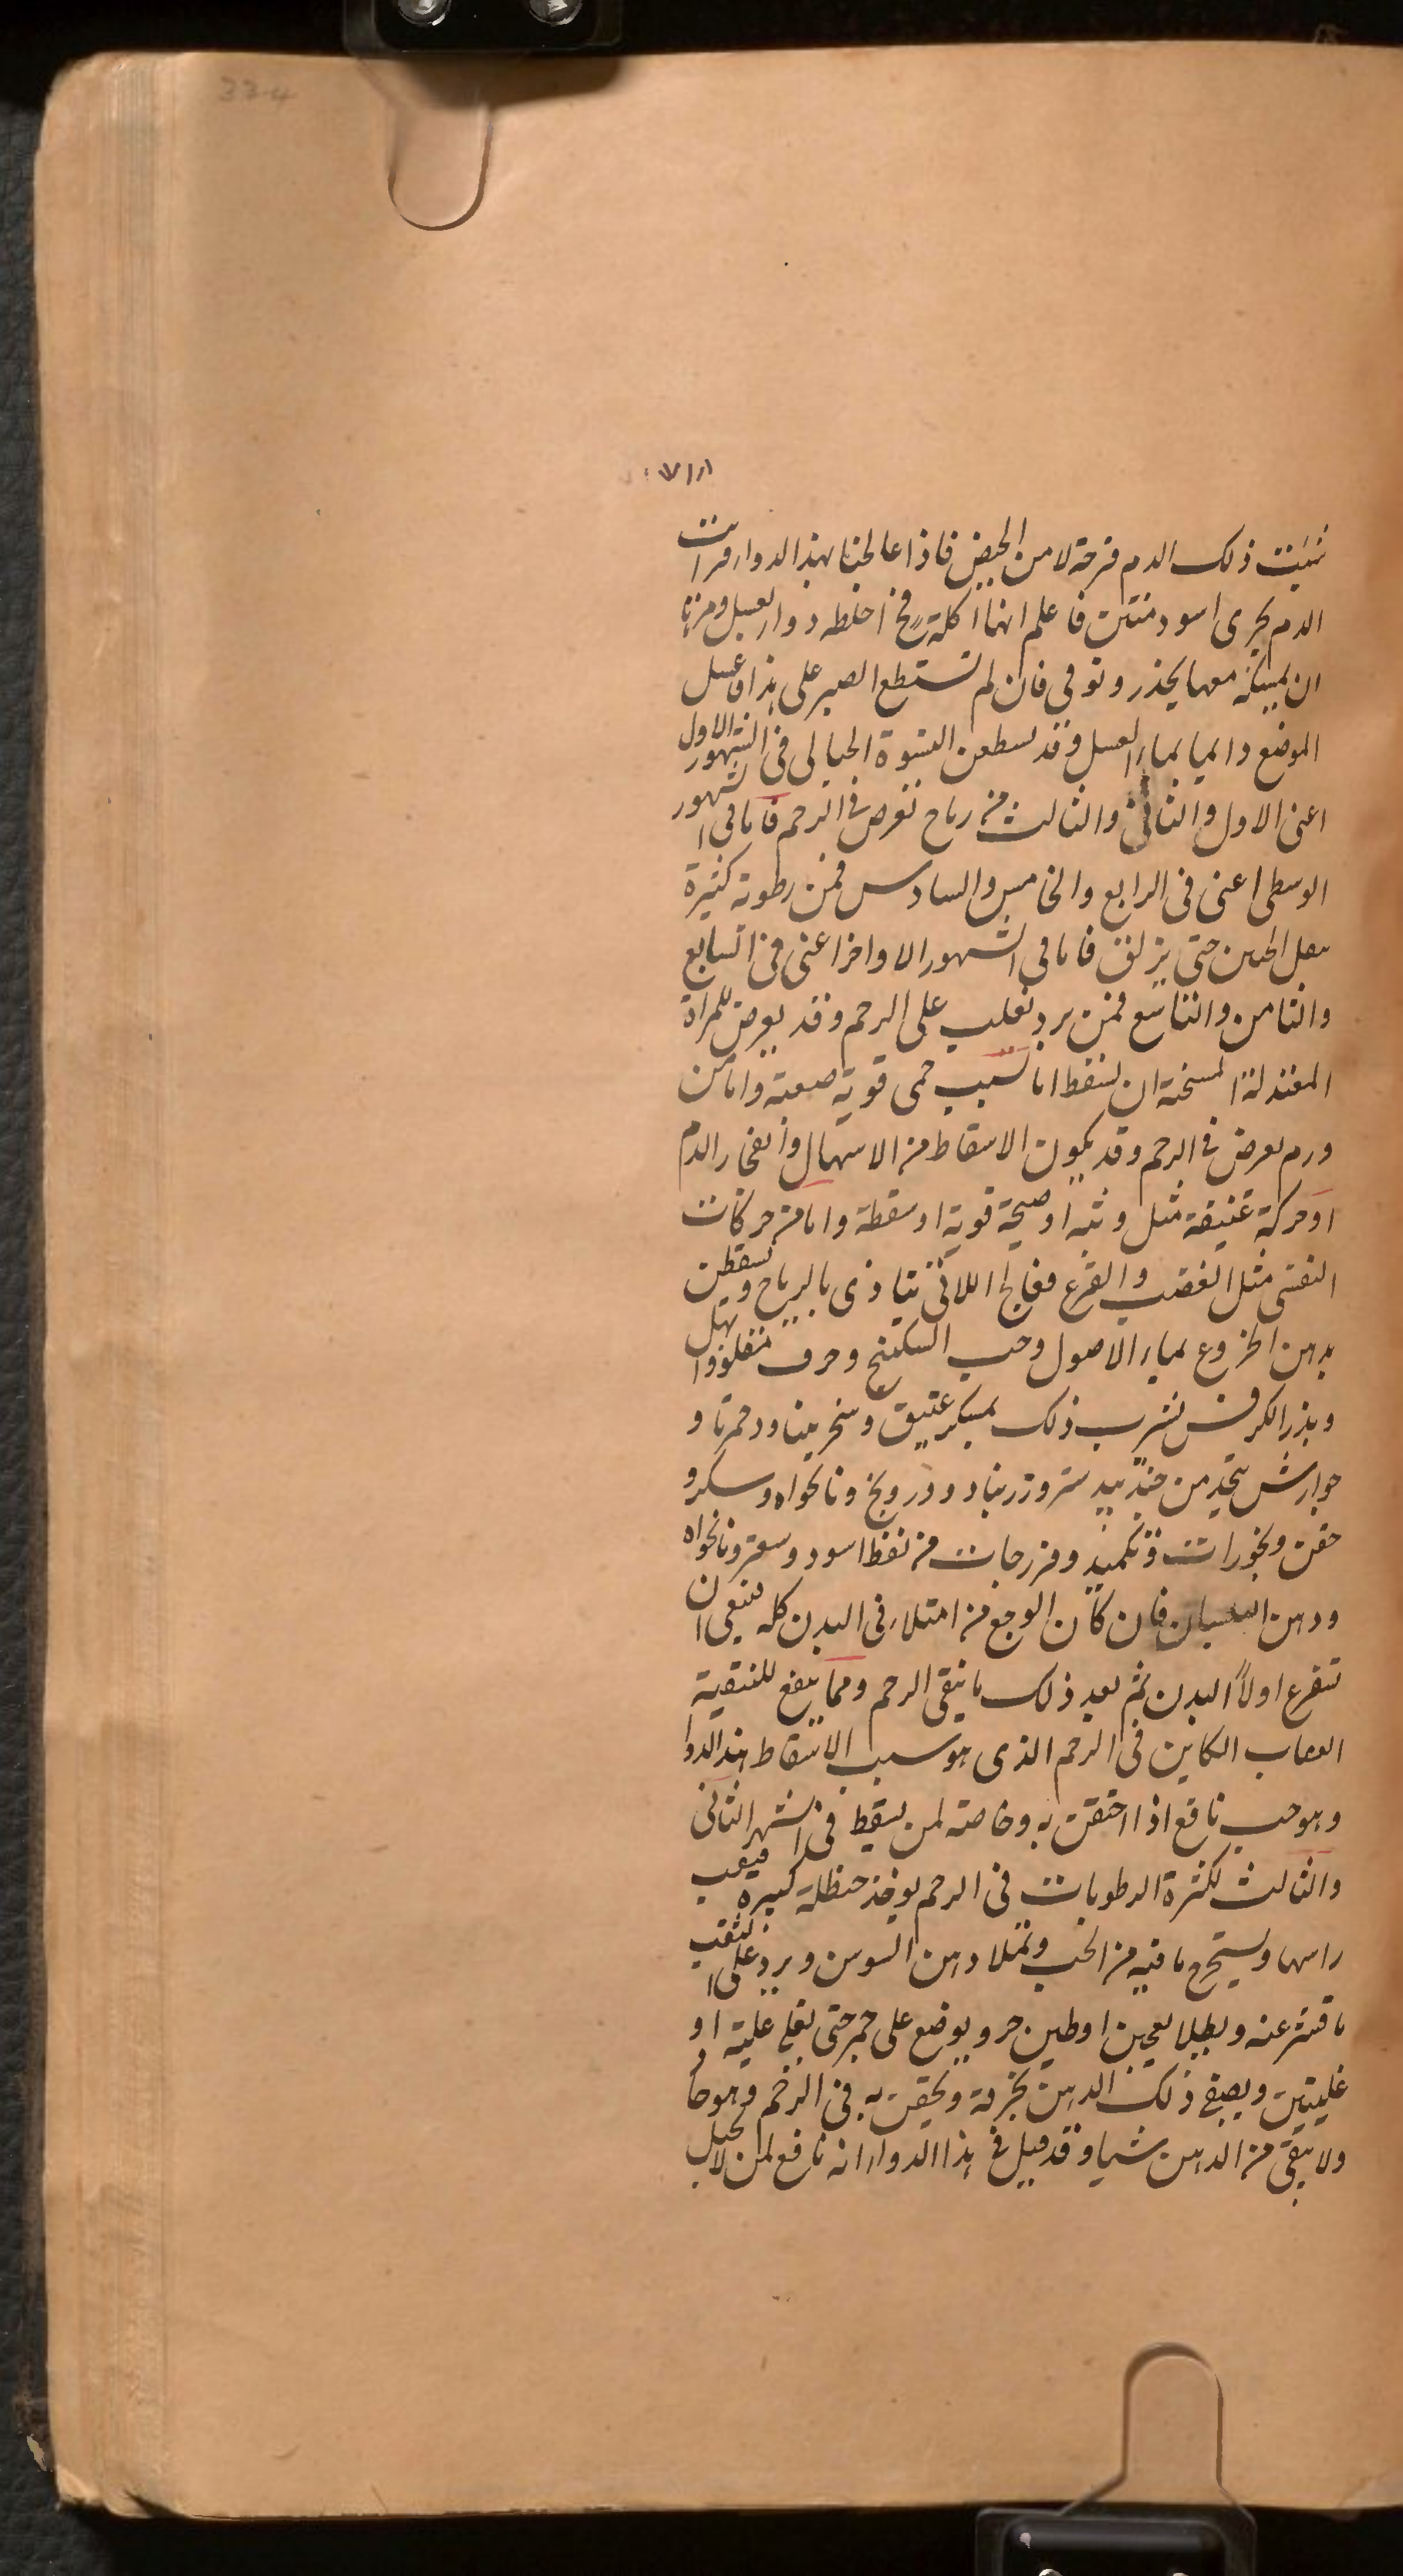 334
ثبت ذلك الدم قرحة لا من الحيض فاذا عالجنا بهذا الدواء فرات
الدم يجرى اسود منتن فاعلم انها اكلة فخ اخلطه دواء لعسل ومرها
ان يمسكه معها بحذر وتوقى فان لم تستطع الصبر على هذا فاغسل
الموضع دايما بماء العسل وقد يسقطن النسوة الحبالى فى الشهور الاول
اعنى الاول والثانى والثالث من رياح تعرض فى الرحم فاما فى الشهور
الوسطى اعنى فى الرابع والخامس والسادس فمن رطوبة كثيرة
تثقل الجنين حتى يزلق فاما فى الشهور الاواخر اعنى فى السابع
والثامن والتاسع فمن برد تغلب على الرحم وقد يعرض للمراة
المعتدلة السخنة ان تسقط اما بسبب حمى قوية صعبة واما من
ورم يعرض فى الرحم وقد يكون الاسقاط من الاسهال وانفجار الدم
او حركة عنيفة مثل وثبه او صيحة قوية او سقطة واما من حركات
النفسى مثل الغضب والفزع فعالج اللاتى تتاذى بالرياح وتسقطن
بدهن الخروع بماء الاصول وحب السكبينج وحرف مقلو وابهل
وبذر الكرفس تشرب ذلك بمسكر عتيق وسخرينا ودحمرتا و
جوارش يتخذ من جندبيدستر وزرنباد ودرونج ونانخواه وسكر و
حقن وبخورات وتكميد وفرزجات من نفط اسود وسعتر ونانخواه
ودهن البلسان فان كان الوجع من امتلاء فى البدن كله فينبغى ان
تتفرغ اولاً البدن ثم بعد ذلك ما ينقى الرحم ومما ينفع للتنقية
العصاب الكاين فى الرحم الذى هو سبب الاسقاط هذا الدوا
وهو حب نافع اذا احتقن به وخاصة لمن يسقط فى الشهر الثانى
والثالث لكثرة الرطوبات فى الرحم يوخذ حنظلة كبيره فيثقب
راسها ويستخرج ما فيه من الحب وتملا دهن السوسن ويرد على الثقب
ما قشر عنه ويطلا بعجين او طين حر ويوضع على جمر حتى يغلى غلية او
غليتين ويصفى ذلك الدهن بخرقة ويحقن به فى الرحم وهو حار
ولا يبقى من الدهن شيا وقد قيل فى هذا الدواء انه نافع لمن لا تحبل